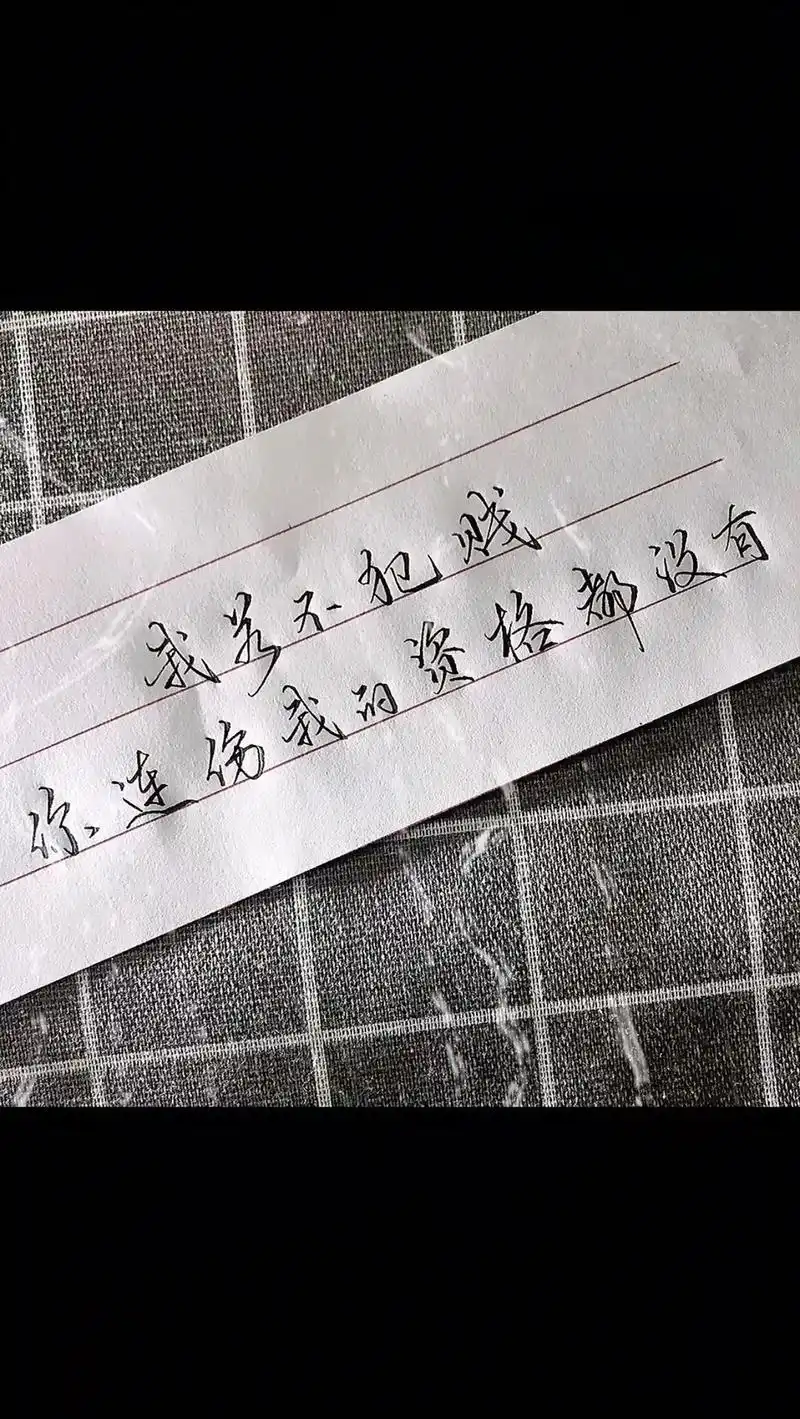 我若不犯贱
你连伤我的资格都没有